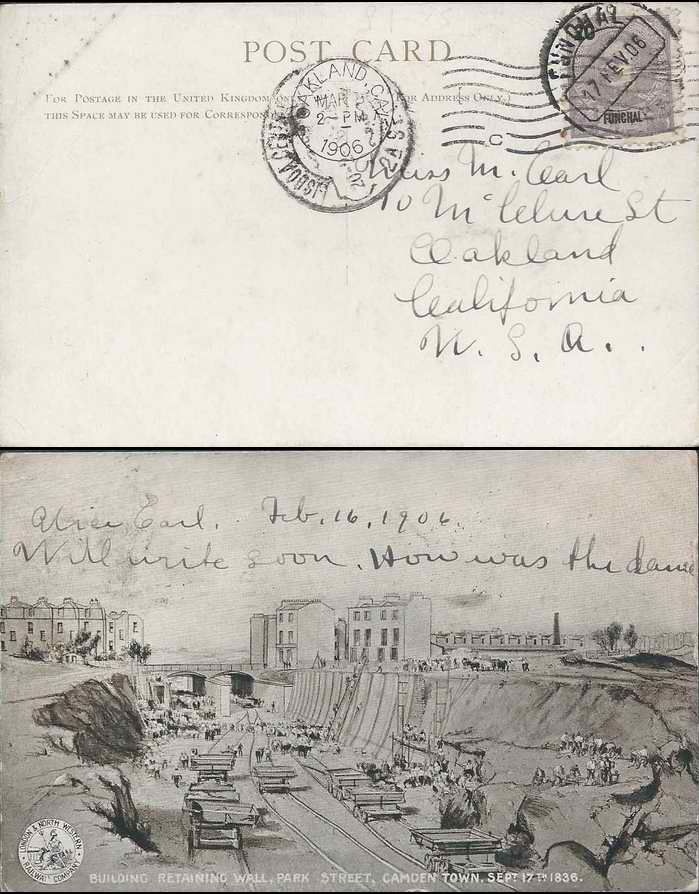 POST CARD
FOR POSTAGE IN THE UNITED KINGDOM ONLY FOR ADDRESS ONLY.)
THIS SPACE MAY BE USED FOR CORRESPON
OAKLAND, CAL.
MAR
2- PM
1906
LISBOA CENTRAL
2A S
FUNCHAL
17 FEV 06
FUNCHAL
C
Miss M. Earl
10 McClure St
Oakland
California
U. S. A..
Alice Earl. Feb. 16, 1906.
Will write soon. How was the dance
LONDON & NORTH WESTERN
RAILWAY COMPANY
BUILDING RETAINING WALL, PARK STREET, CAMDEN TOWN. SEPT 17TH 1836.